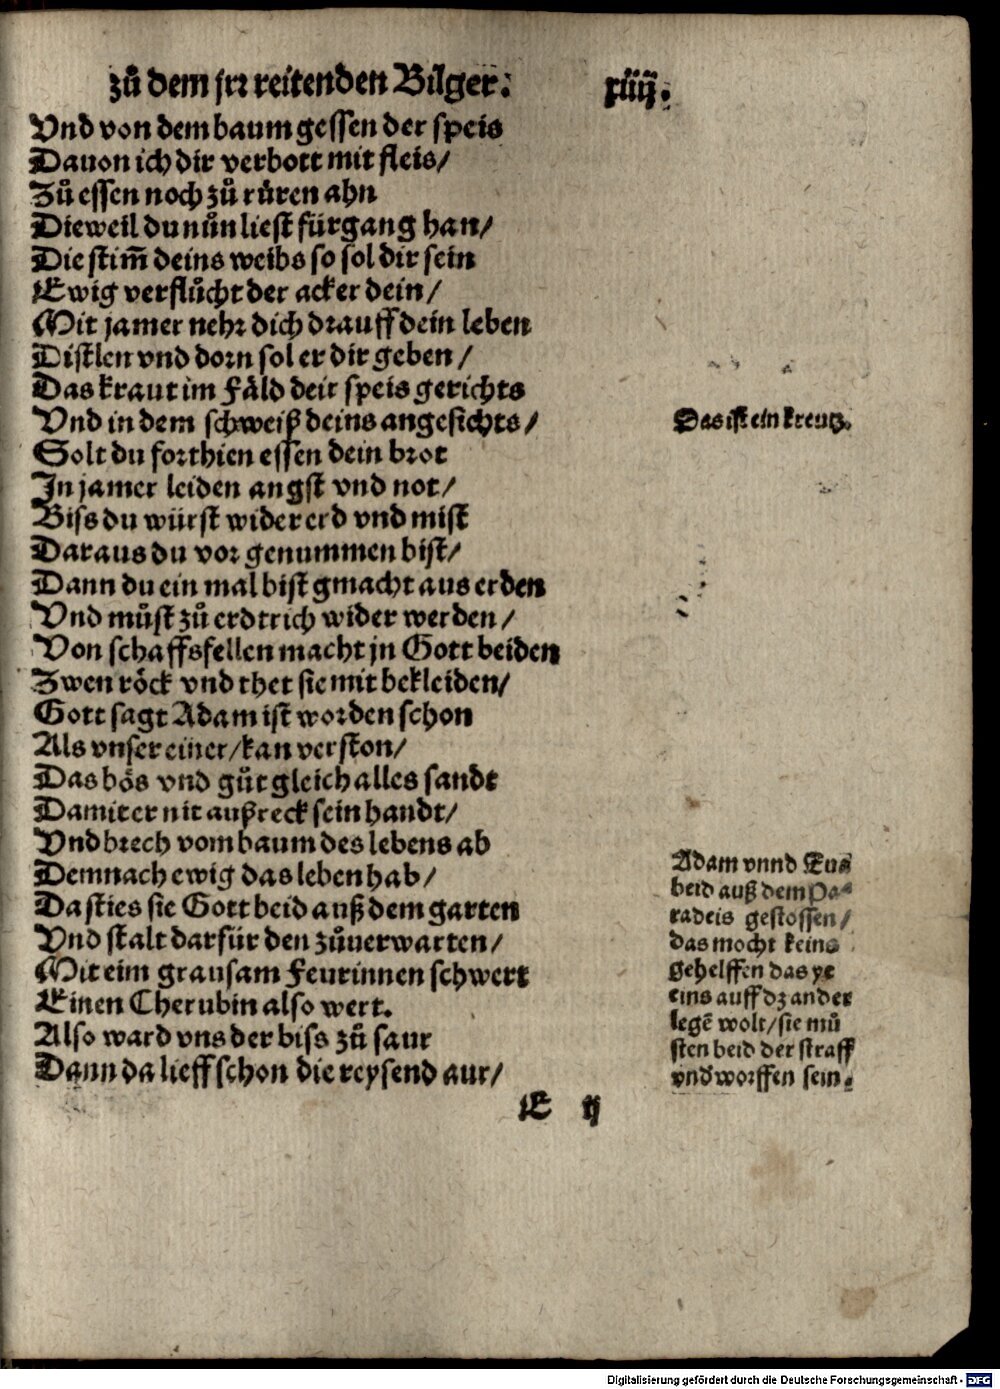 zů dem jrr reitenden Bilger. xiiij.
Vnd von dem baum gessen der speis
Dauon ich dir verbott mit fleis/
Zů essen noch zů růren ahn
Dieweil du nůn liest fürgang han/
Die stim̃ deins weibs so sol dir sein
Ewig verflůcht der acker dein/
Mit jamer nehr dich drauff dein leben
Distlen vnd dorn sol er dir geben/
Das kraut im fäld deir speis gerichts
Vnd in dem schweiß deins angesichts/
Das ist ein kreutz.
Solt du forthien essen dein brot
In jamer leiden angst vnd not/
Biss du würst wider erd vnd mist
Daraus du vor genummen bist/
Dann du ein mal bist gmacht aus erden
Vnd můst zů erdtrich wider werden/
Von schaffsfellen macht jn Gott beiden
Zwen röck vnd thet sie mit bekleiden/
Gott sagt Adam ist worden schon
Als vnser einer/kan verston/
Das bös vnd gůt gleich alles sandt
Damit er nit außreck sein handt/
Vnd brech vom baum des lebens ab
Demnach ewig das leben hab/
Da sties sie Gott beid auß dem garten
Vnd stalt darfür den zůuerwarten/
Mit eim grausam feurinnen schwert
Einen Cherubin also wert.
Also ward vns der biss zů saur
Dann da lieff schon die reysend aur/
Adam vnnd Eua
beid auß dem Pa-
radeis gestossen/
das mocht keins
gehelffen das ye
eins auff dz ander
legẽ wolt/sie mů
sten beid der straff
vnd'worffen sein.
E ij
Digitalisierung gefördert durch die Deutsche Forschungsgemeinschaft - DFG